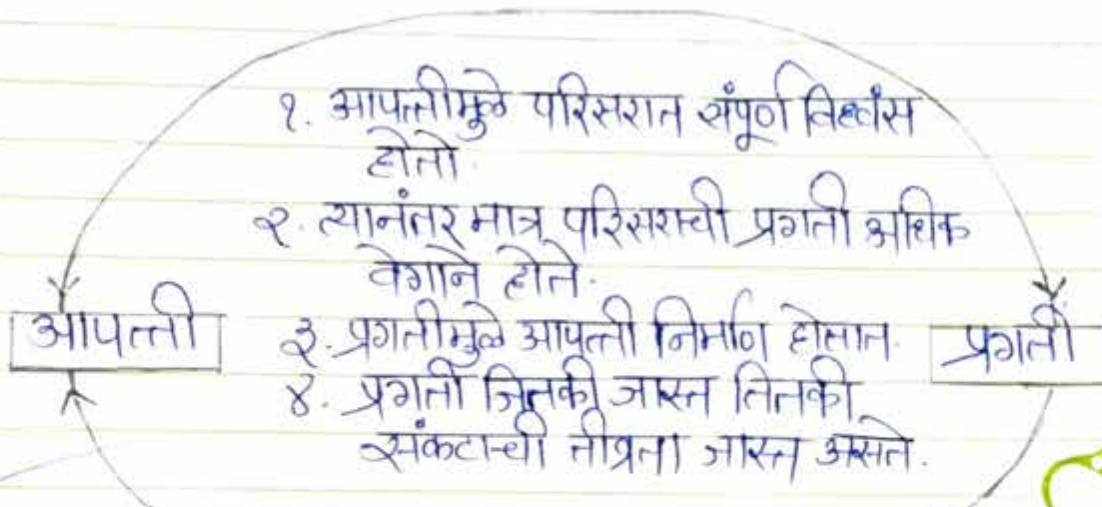 १. आपत्तीमुळे परिसरात संपूर्ण विध्वंस
होतो.
२. त्यानंतर मात्र परिसराची प्रगती अधिक
वेगाने होते.
आपत्ती
३. प्रगतीमुळे आपत्ती निर्माण होतात.
प्रगती
४. प्रगती जितकी जास्त तितकी
संकटाची तीव्रता जास्त असते.